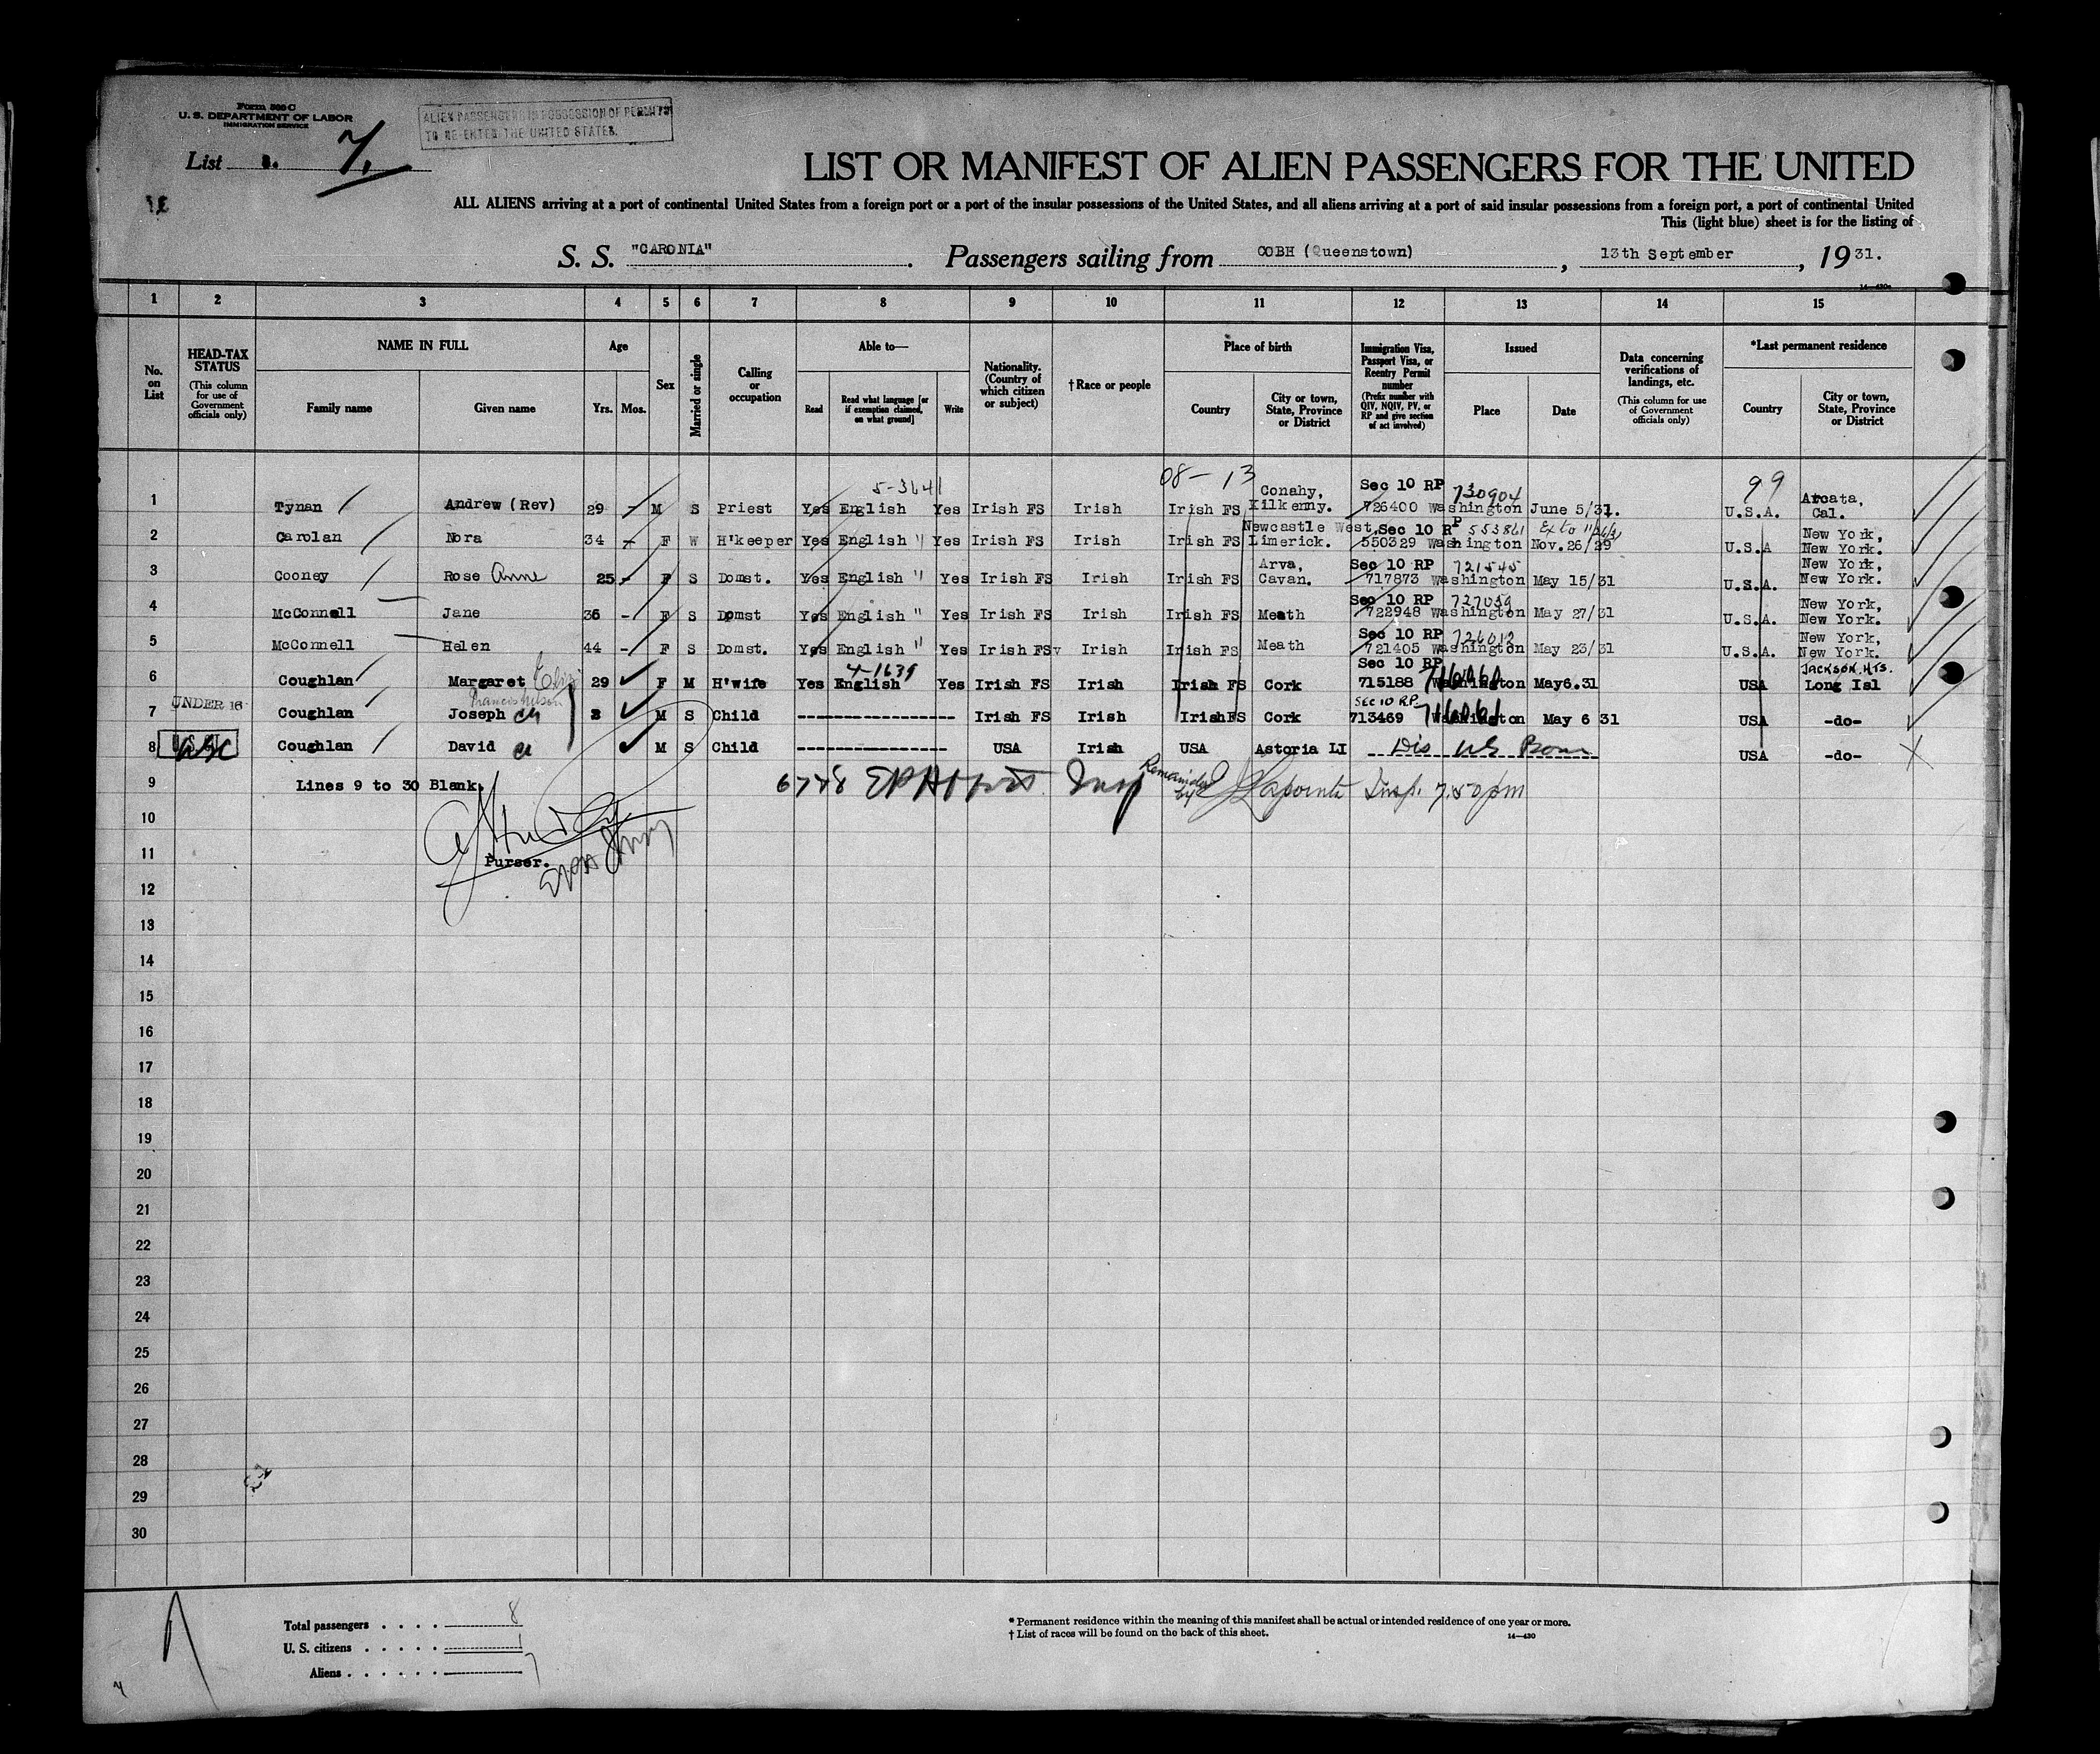 Form 500 C
U. S. DEPARTMENT OF LABOR
IMMIGRATION SERVICE
ALIEN PASSENGERS IN POSSESSION OF PERMITS
TO RE-ENTER THE UNITED STATES.
List 7.
LIST OR MANIFEST OF ALIEN PASSENGERS FOR THE UNITED
ALL ALIENS arriving at a port of continental United States from a foreign port or a port of the insular possessions of the United States, and all aliens arriving at a port of said insular possessions from a foreign port, a port of continental United
This (light blue) sheet is for the listing of
S. S. "CARONIA". Passengers sailing from COBH (Queenstown), 13th September, 1931.
1 2 3 4 5 6 7 8 9 10 11 12 13 14 15
No. on List
HEAD-TAX STATUS
(This column for use of Government officials only)
NAME IN FULL
Family name Given name
Age
Yrs. Mos.
Sex
Married or single
Calling or occupation
Able to—
Read
Read what language [or if exemption claimed, on what ground]
Write
Nationality. (Country of which citizen or subject)
† Race or people
Place of birth
Country
City or town, State, Province or District
Immigration Visa, Passport Visa, or Reentry Permit number
(Prefix number with QIV, NQIV, PV, or RP and give section of act involved)
Issued
Place Date
Data concerning verifications of landings, etc.
(This column for use of Government officials only)
*Last permanent residence
Country
City or town, State, Province or District
5-3641 08-13 99
1 Tynan Andrew (Rev) 29 - M S Priest Yes English Yes Irish FS Irish Irish FS Conahy, Kilkenny. Sec 10 RP 726400 730904 Washington June 5/31. U.S.A. Arcata, Cal.
2 Carolan Nora 34 - F W H'keeper Yes English " Yes Irish FS Irish Irish FS Newcastle West, Limerick. Sec 10 RP 550329 553861 Washington Nov.26/29 U.S.A New York, New York.
3 Cooney Rose Anne 25 - F S Domst. Yes English " Yes Irish FS Irish Irish FS Arva, Cavan. Sec 10 RP 717873 721545 Washington May 15/31 U.S.A. New York, New York.
4 McConnell Jane 36 - F S Domst Yes English " Yes Irish FS Irish Irish FS Meath Sec 10 RP 722948 727059 Washington May 27/31 U.S.A. New York, New York.
5 McConnell Helen 44 - F S Domst. Yes English " Yes Irish FS Irish Irish FS Meath Sec 10 RP 721405 726012 Washington May 23/31 U.S.A. New York, New York.
4-1639
6 Coughlan Margaret Eliz 29 F M H'wife Yes English Yes Irish FS Irish Irish FS Cork Sec 10 RP 715188 716060 Washington May6.31 USA JACKSON.HTS. Long Isl
7 UNDER 16 Coughlan Joseph Francis Nelson M S Child ---------------- Irish FS Irish IrishFS Cork SEC 10 RP. 713469 716061 Washington May 6 31 USA -do-
8 Coughlan David M S Child ---------------- USA Irish USA Astoria LI Dis US Born USA -do-
9 Lines 9 to 30 Blank. 6748 Insp Remainder by Lapointe Insp. 7.50 pm
10
11 Purser.
12
13
14
15
16
17
18
19
20
21
22
23
24
25
26
27
28
29
30
Total passengers . . . . 8
U. S. citizens . . . . . 1
Aliens . . . . . . 7
* Permanent residence within the meaning of this manifest shall be actual or intended residence of one year or more.
† List of races will be found on the back of this sheet.
14—430